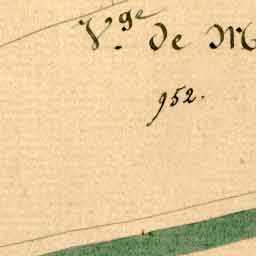 V.ge de M
952.